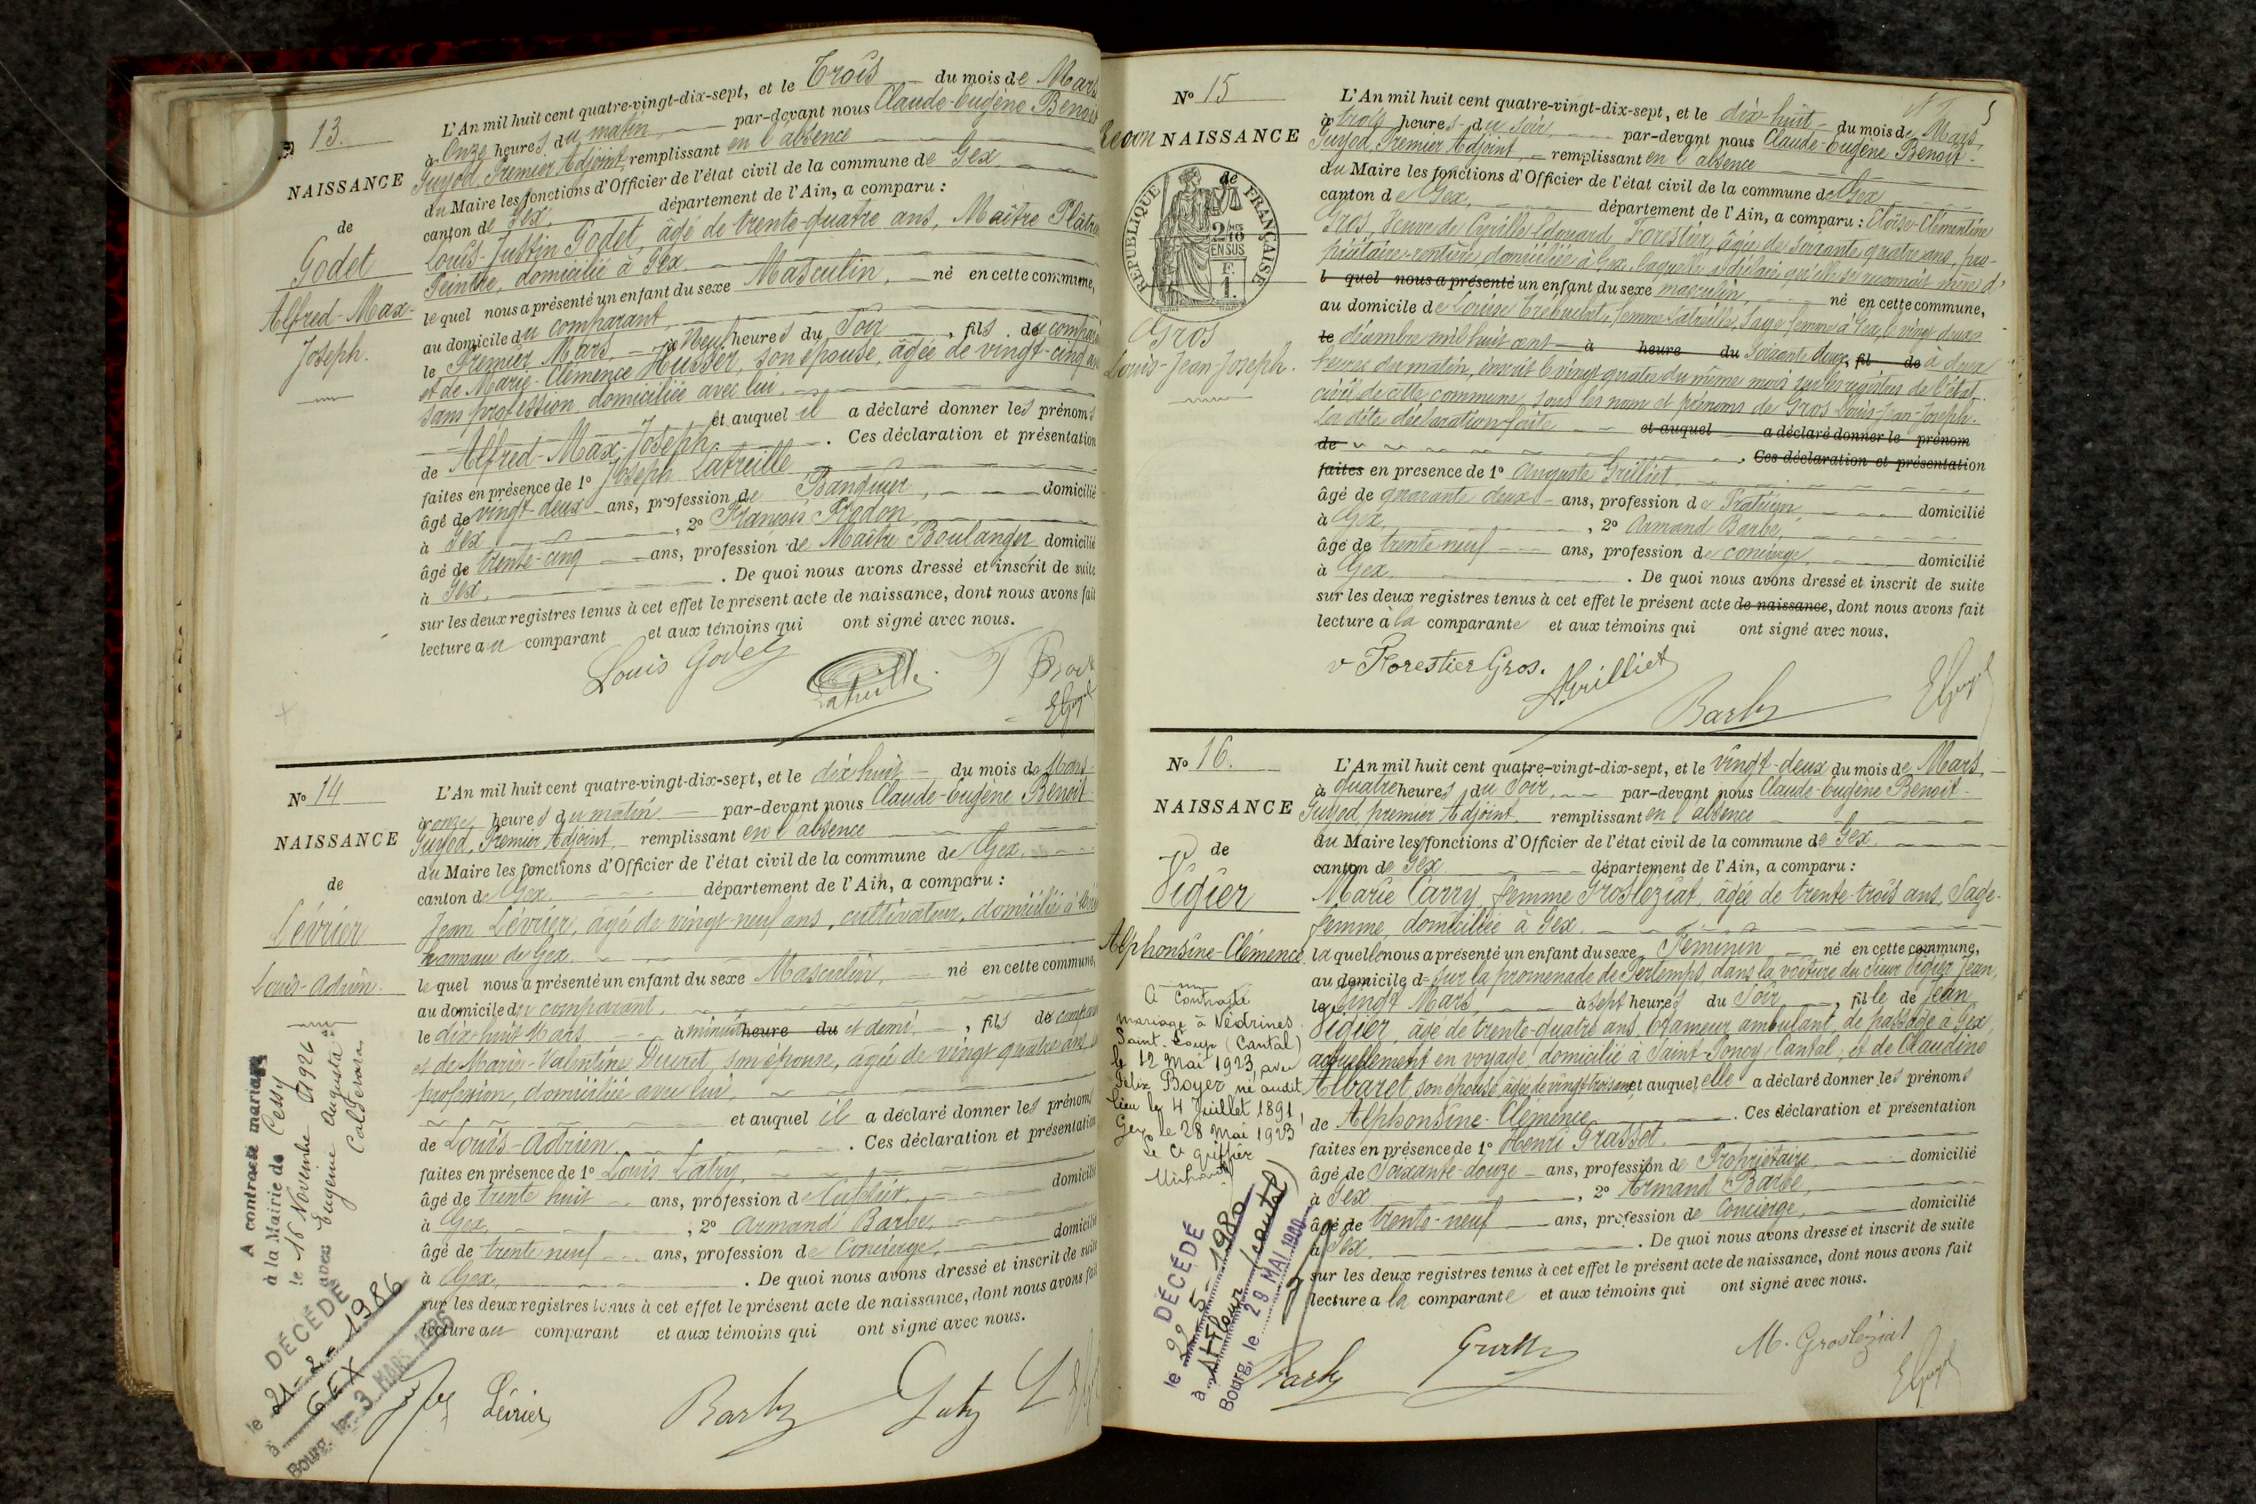 13.
NAISSANCE
de
Godet
Alfred-Max-
Joseph.
L'An mil huit cent quatre-vingt-dix-sept, et le Trois du mois de Mars
à Onze heures du matin, par-devant nous Claude-Eugène Benoit
Guyod, Premier Adjoint, remplissant en l'absence
du Maire les fonctions d'Officier de l'état civil de la commune de Gex
canton de Gex, département de l'Ain, a comparu :
Louis-Justin Godet, âgé de trente-quatre ans, Maître Plâtrier
Peintre, domicilié à Gex.
lequel nous a présenté un enfant du sexe Masculin, né en cette commune,
au domicile du comparant,
le Premier Mars, à Neuf heures du Soir, fils du comparant
et de Marie-Clémence Husser, son épouse, âgée de vingt-cinq ans
sans profession domiciliée avec lui.
et auquel il a déclaré donner les prénoms
de Alfred-Max-Joseph. Ces déclaration et présentation
faites en présence de 1º Joseph Latreille
âgé de vingt-deux ans, profession de Banquier, domicilié
à Gex, 2º François Prodon
âgé de trente-cinq ans, profession de Maître Boulanger domicilié
à Gex. De quoi nous avons dressé et inscrit de suite
sur les deux registres tenus à cet effet le présent acte de naissance, dont nous avons fait
lecture au comparant et aux témoins qui ont signé avec nous.
Louis Godet
Latreille
Nº 14
NAISSANCE
de
Lévrier
Louis-Adrien.
A contracté mariage
à la Mairie de Cessy
le 16 Novembre 1926
avec Eugénie Augusta
Calderara
DÉCÉDÉ
le 21-2-1986
à GEX
Bourg, le -3 MARS 1986
L'An mil huit cent quatre-vingt-dix-sept, et le dix huit du mois de Mars
à onze heures du matin par-devant nous Claude-Eugène Benoit
Guyod, Premier Adjoint, remplissant en l'absence
du Maire les fonctions d'Officier de l'état civil de la commune de Gex
canton de Gex département de l'Ain, a comparu :
Jean Lévrier, âgé de vingt-neuf ans, cultivateur, domicilié à
hameau de Gex.
lequel nous a présenté un enfant du sexe Masculin, né en cette commune,
au domicile du comparant,
le dix-huit Mars à minuit heure du et demi, fils du comparant
et de Marie-Valentine Ducret, son épouse, âgée de vingt quatre ans,
profession, domiciliée avec lui,
et auquel il a déclaré donner les prénoms
de Louis-Adrien. Ces déclaration et présentation
faites en présence de 1º Louis
âgé de trente huit ans, profession de domicilié
à Gex, 2º Armand Barbe,
âgé de trente neuf ans, profession de Concierge, domicilié
à Gex, De quoi nous avons dressé et inscrit de suite
sur les deux registres tenus à cet effet le présent acte de naissance, dont nous avons fait
lecture au comparant et aux témoins qui ont signé avec nous.
Lévrier
Barbe
Nº 15
Recon NAISSANCE
de
RÉPUBLIQUE FRANÇAISE
2/10
EN SUS
F.
1.
Gros
Louis-Jean-Joseph.
5
L'An mil huit cent quatre-vingt-dix-sept, et le dix huit du mois de Mars,
à trois heures du soir, par-devant nous Claude-Eugène Benoit
Guyod, Premier Adjoint, remplissant en l'absence
du Maire les fonctions d'Officier de l'état civil de la commune de Gex
canton de Gex, département de l'Ain, a comparu : Eloïse-Clémentine
Gros, veuve de Cyrille Edouard Forestier, âgée de soixante quatre ans, pro-
priétaire-rentière, domiciliée à Gex, laquelle a déclaré qu'elle se reconnait mère d'
l quel nous a présenté un enfant du sexe masculin, né en cette commune,
au domicile de Louise Trébuchet, femme Latreille, Sage femme à Gex, le vingt deux
le décembre mil huit cent à heure du soixante deux, fil de à deux
heures du matin, inscrit le vingt quatre du même mois sur les registres de l'état
civil de cette commune sous les nom et prénoms de Gros Louis-Jean-Joseph.
La dite déclaration faite et auquel a déclaré donner le prénom
de . Ces déclaration et présentation
faites en présence de 1º Auguste Grilliet
âgé de quarante deux ans, profession de Praticien domicilié
à Gex, 2º Armand Barbe,
âgé de trente neuf ans, profession de concierge, domicilié
à Gex. De quoi nous avons dressé et inscrit de suite
sur les deux registres tenus à cet effet le présent acte de naissance, dont nous avons fait
lecture à la comparante et aux témoins qui ont signé avec nous.
v Forestier Gros.
A Grilliet
Barbe
Nº 16.
NAISSANCE
de
Vigier
Alphonsine-Clémence
A contracté
mariage à Védrines
Saint-Loup (Cantal)
le 12 Mai 1923, avec
Félix Boyer né audit
lieu le 4 Juillet 1891,
Gex le 28 Mai 1923
Le Cs Greffier
DÉCÉDÉ
le 22-5-1980
à St-Flour (Cantal)
Bourg, le 29 MAI 1980
L'An mil huit cent quatre-vingt-dix-sept, et le vingt-deux du mois de Mars,
à quatre heures du Soir, par-devant nous Claude-Eugène Benoit
Guyod, premier Adjoint, remplissant en l'absence
du Maire les fonctions d'Officier de l'état civil de la commune de Gex
canton de Gex département de l'Ain, a comparu :
Marie Carry femme Grosleziat, âgée de trente-trois ans, Sage-
femme, domiciliée à Gex.
laquelle nous a présenté un enfant du sexe Féminin né en cette commune,
au domicile d sur la promenade de Pertemps, dans la voiture du sieur Vigier Jean,
le vingt Mars, à sept heures du Soir, fille de Jean
Vigier, âgé de trente-quatre ans, étameur ambulant, de passage à Gex,
actuellement en voyage, domicilié à Saint-Poncy, Cantal, et de Claudine
Albaret, son épouse âgée de vingt trois ans, et auquel elle a déclaré donner les prénoms
de Alphonsine-Clémence. Ces déclaration et présentation
faites en présence de 1º Henri Grasset
âgé de Soixante-douze ans, profession de Propriétaire domicilié
à Gex, 2º Armand Barbe,
âgé de trente-neuf ans, profession de Concierge, domicilié
à Gex. De quoi nous avons dressé et inscrit de suite
sur les deux registres tenus à cet effet le présent acte de naissance, dont nous avons fait
lecture à la comparante et aux témoins qui ont signé avec nous.
Barbe
M. Grosléziat